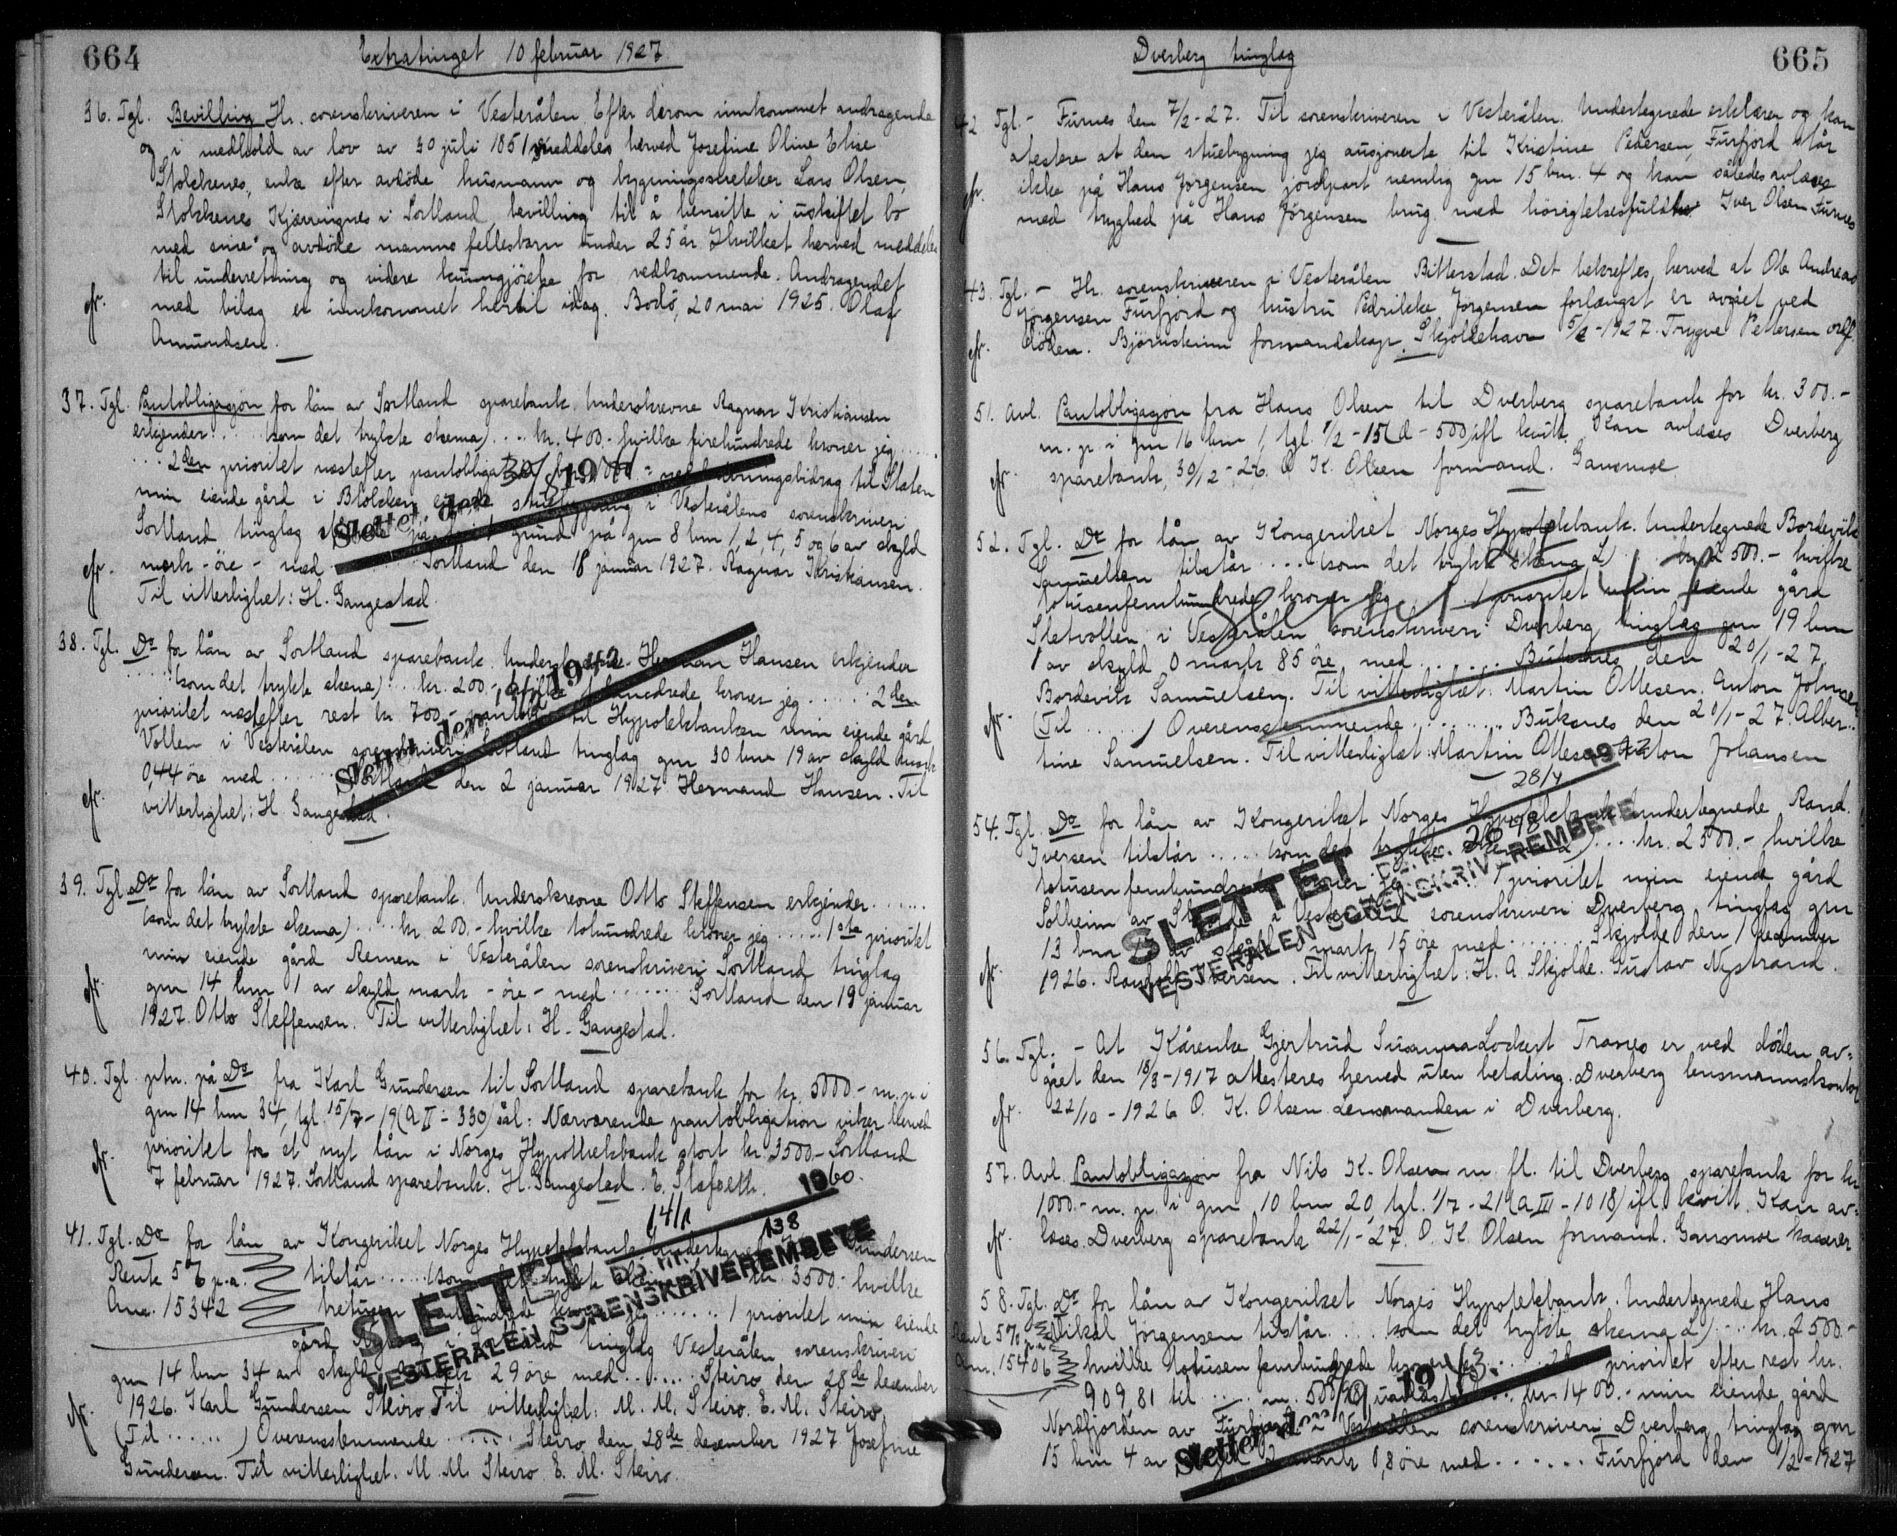 664
Extratinget 10 februar 1927
36. Tgl. Bevilling Hr. sorenskriveren i Vesterålen. Efter derom innkommet andragende
og i medhold av lov av 30 juli 1851 meddeles herved Josefine Oline Elise
Blokkenes, enke efter avdöde husmann og bygningssnekker Lars Olsen,
Blokkenes Kjærringnes i Sortland, bevilling til å hensitte i uskiftet bo
med sine og avdöde manns fellesbarn under 25 år. Hvilket herved meddeles
til underretning og videre kunngjörelse for vedkommende. Andragendet
med bilag er innkommet hertil idag. Bodö, 20 mai 1925. Olaf
Amundsen.
37. Tgl. Pantobligasjon for lån av Sortland sparebank. Underskrevne Ragnar Kristiansen
erkjender .... (som det trykte skema) .... kr. 400.- hvilke firehundrede kroner jeg ......
... 2den prioritet næstefter pantobligasjon til Staten
min eiende gård i Blokken i Vesterålens sorenskriveri
Sortland tinglag grund på gnr 8 bnr 1, 2, 4, 5 og 6 av skyld
mark - öre - med ...... Sortland den 18 januar 1927. Ragnar Kristiansen.
Til vitterlighet: H. Gangestad.
Slettet den 1941
38. Tgl. Do for lån av Sortland sparebank. Herman Hansen erkjender
..... (som det trykte skema) ... kr. 200.- hvilke tohundrede kroner jeg ...... 2den
prioritet næstefter rest kr 700.- til Hypotekbanken min eiende gård
Vollen i Vesterålen sorenskriveri Sortland tinglag gnr 30 bnr 19 av skyld mark
0,44 öre med ........ Sortland den 2 januar 1927 Hermand Hansen. Til
vitterlighet: H Gangestad.
Slettet den 1942
39. Tgl. Do for lån av Sortland sparebank. Underskrevne Otto Steffensen erkjender .......
(som det trykte skema) ..... kr 200.- hvilke tohundrede kroner jeg ..... 1ste prioritet
min eiende gård Remen i Vesterålen sorenskriveri Sortland tinglag
gnr 14 bnr 1 av skyld mark - öre - med ........ Sortland den 19 januar
1927. Otto Steffensen. Til vitterlighet: H. Gangestad.
40. Tgl. ptn. på Do fra Karl Gundersen til Sortland sparebank for kr. 5000.- m. p. i
gnr 14 bnr 34, tgl. 15/7-19 (A II - 330) sål: Nærværende pantobligation viker herved
prioritet for et nyt lån i Norges Hypothekbank stort kr 3500.- Sortland
7 februar 1927. Sortland sparebank. H. Gangestad.
41. Tgl. Do for lån av Kongeriket Norges Hypotekbank. Undertegnede Gundersen
Rente 5% p.a. tilstår ..... (som det trykte kr. 3500.- hvilke
Ann. 15342 kroner jeg ....... 1 prioritet min eiende
gård i tinglag Vesterålen sorenskriveri
gnr 14 bnr 34 av skyld 29 öre med ...... Steiro den 28de desember
1926. Karl Gundersen Steiro. Til vitterlighet: M. M. Steiro. E. M. Steiro
(Til ......) Overensstemmende ...... Steiro den 28de desember 1927 Josefine
Gundersen. Til vitterlighet. M. M. Steiro E. M. Steiro.
14/1 1960.
SLETTET Db. nr. 138
VESTERÅLEN SORENSKRIVEREMBETE
Dverberg tinglag
665
42 Tgl. - Furnes den 7/2-27. Til sorenskriveren i Vesterålen. Undertegnede erklærer og kan
atestere at den stuebygning jeg ausjonerte til Kristine Pedersen, Furfjord står
ikke på Hans Jörgensen jordpart nemlig gnr 15 bnr. 4 og kan således avlæses
med tryghed på Hans Jörgensen brug med Iver Olsen Furnes
43. Tgl. - Hr. sorenskriveren i Vesterålen Bitterstad. Det bekreftes herved at Ole Andreas
Jörgensen Furfjord og hustru Jörgensen forlængst er avgået ved
döden. Björnskinn formandskap. Skjoldehavn 5/2-1927. Trygve Pettersen ordf.
51. Avl. Pantobligasjon fra Hans Olsen til Dverberg sparebank for kr. 300.-
m. p. i gnr 16 bnr 1, tgl. 1/2-15 ifl kvitt. Kan avlæses Dverberg
sparebank, 30/12-26. O K. Olsen formand. Gansmoe
52. Tgl. Do for lån av Kongeriket Norges Hypotekbank. Undertegnede Bordevik
Samuelsen tilstår .... (som det trykte skema L) kr. 2500.- hvilke
totusenfemhundrede kroner jeg 1 prioritet min eiende gård
Sletvollen i Vesterålen sorenskriveri Dverberg tinglag gnr 19 bnr
1 av skyld 0 mark 85 öre med ...... Buksnes den 20/1-27
Bordevik Samuelsen. Til vitterlighet: Martin Ottesen. Anton Johnsen
(Til .....) Overensstemmende .......... Buksnes den 20/1-27. Alber-
tine Samuelsen. Til vitterlighet: Martin Ottesen Anton Johansen
54. Tgl. Do for lån av Kongeriket Norges Hypotekbank Undertegnede Rand.
Iversen tilstår ...... (som det trykte .... kr. 2500.- hvilke
totusenfemhundrede kroner jeg 1 prioritet min eiende gård
Solheim av i Vesterålen sorenskriveri Dverberg tinglag gnr
13 bnr av skyld mark 15 öre med ........ Skjolde den 1 desember
1926. Randolf Iversen. Til vitterlighet: H. A Skjolde. Gustav Nystrand.
28/4
SLETTET
VESTERÅLEN SORENSKRIVEREMBETE
56. Tgl. - At Kårenke Gjertrud Susanna Lockert Tranes er ved döden av-
gået den 18/3-1917 attesteres herved uten betaling. Dverberg lensmannskontor
22/10-1926 O. K. Olsen Lensmanden i Dverberg.
57. Avl. Pantobligasjon fra Nils K. Olsen m. fl. til Dverberg sparebank for kr
1000.- m. p. i gnr 10 bnr 20, tgl. 1/7-21 (A III - 1018) ifl. kvitt. Kan av-
læses. Dverberg sparebank 22/1-27. O. K. Olsen formand. Gansmoe kasserer
58. Tgl. Do for lån av Kongeriket Norges Hypotekbank. Undertegnede Hans
Rente 5% p.a. Mikal Jörgensen tilstår .... (som det trykte skema L) ... kr. 2500.-
Ann. 15406 hvilke totusenfemhundrede kroner jeg prioritet efter rest kr.
909,81 til kr. 1400.- min eiende gård
Nordfjorden av Furfjord i Vesterålen sorenskriveri Dverberg tinglag gnr
15 bnr 4 av skyld 2 mark 0,8 öre med ...... Furfjord den 1/2-1927
Slettet den 1943.